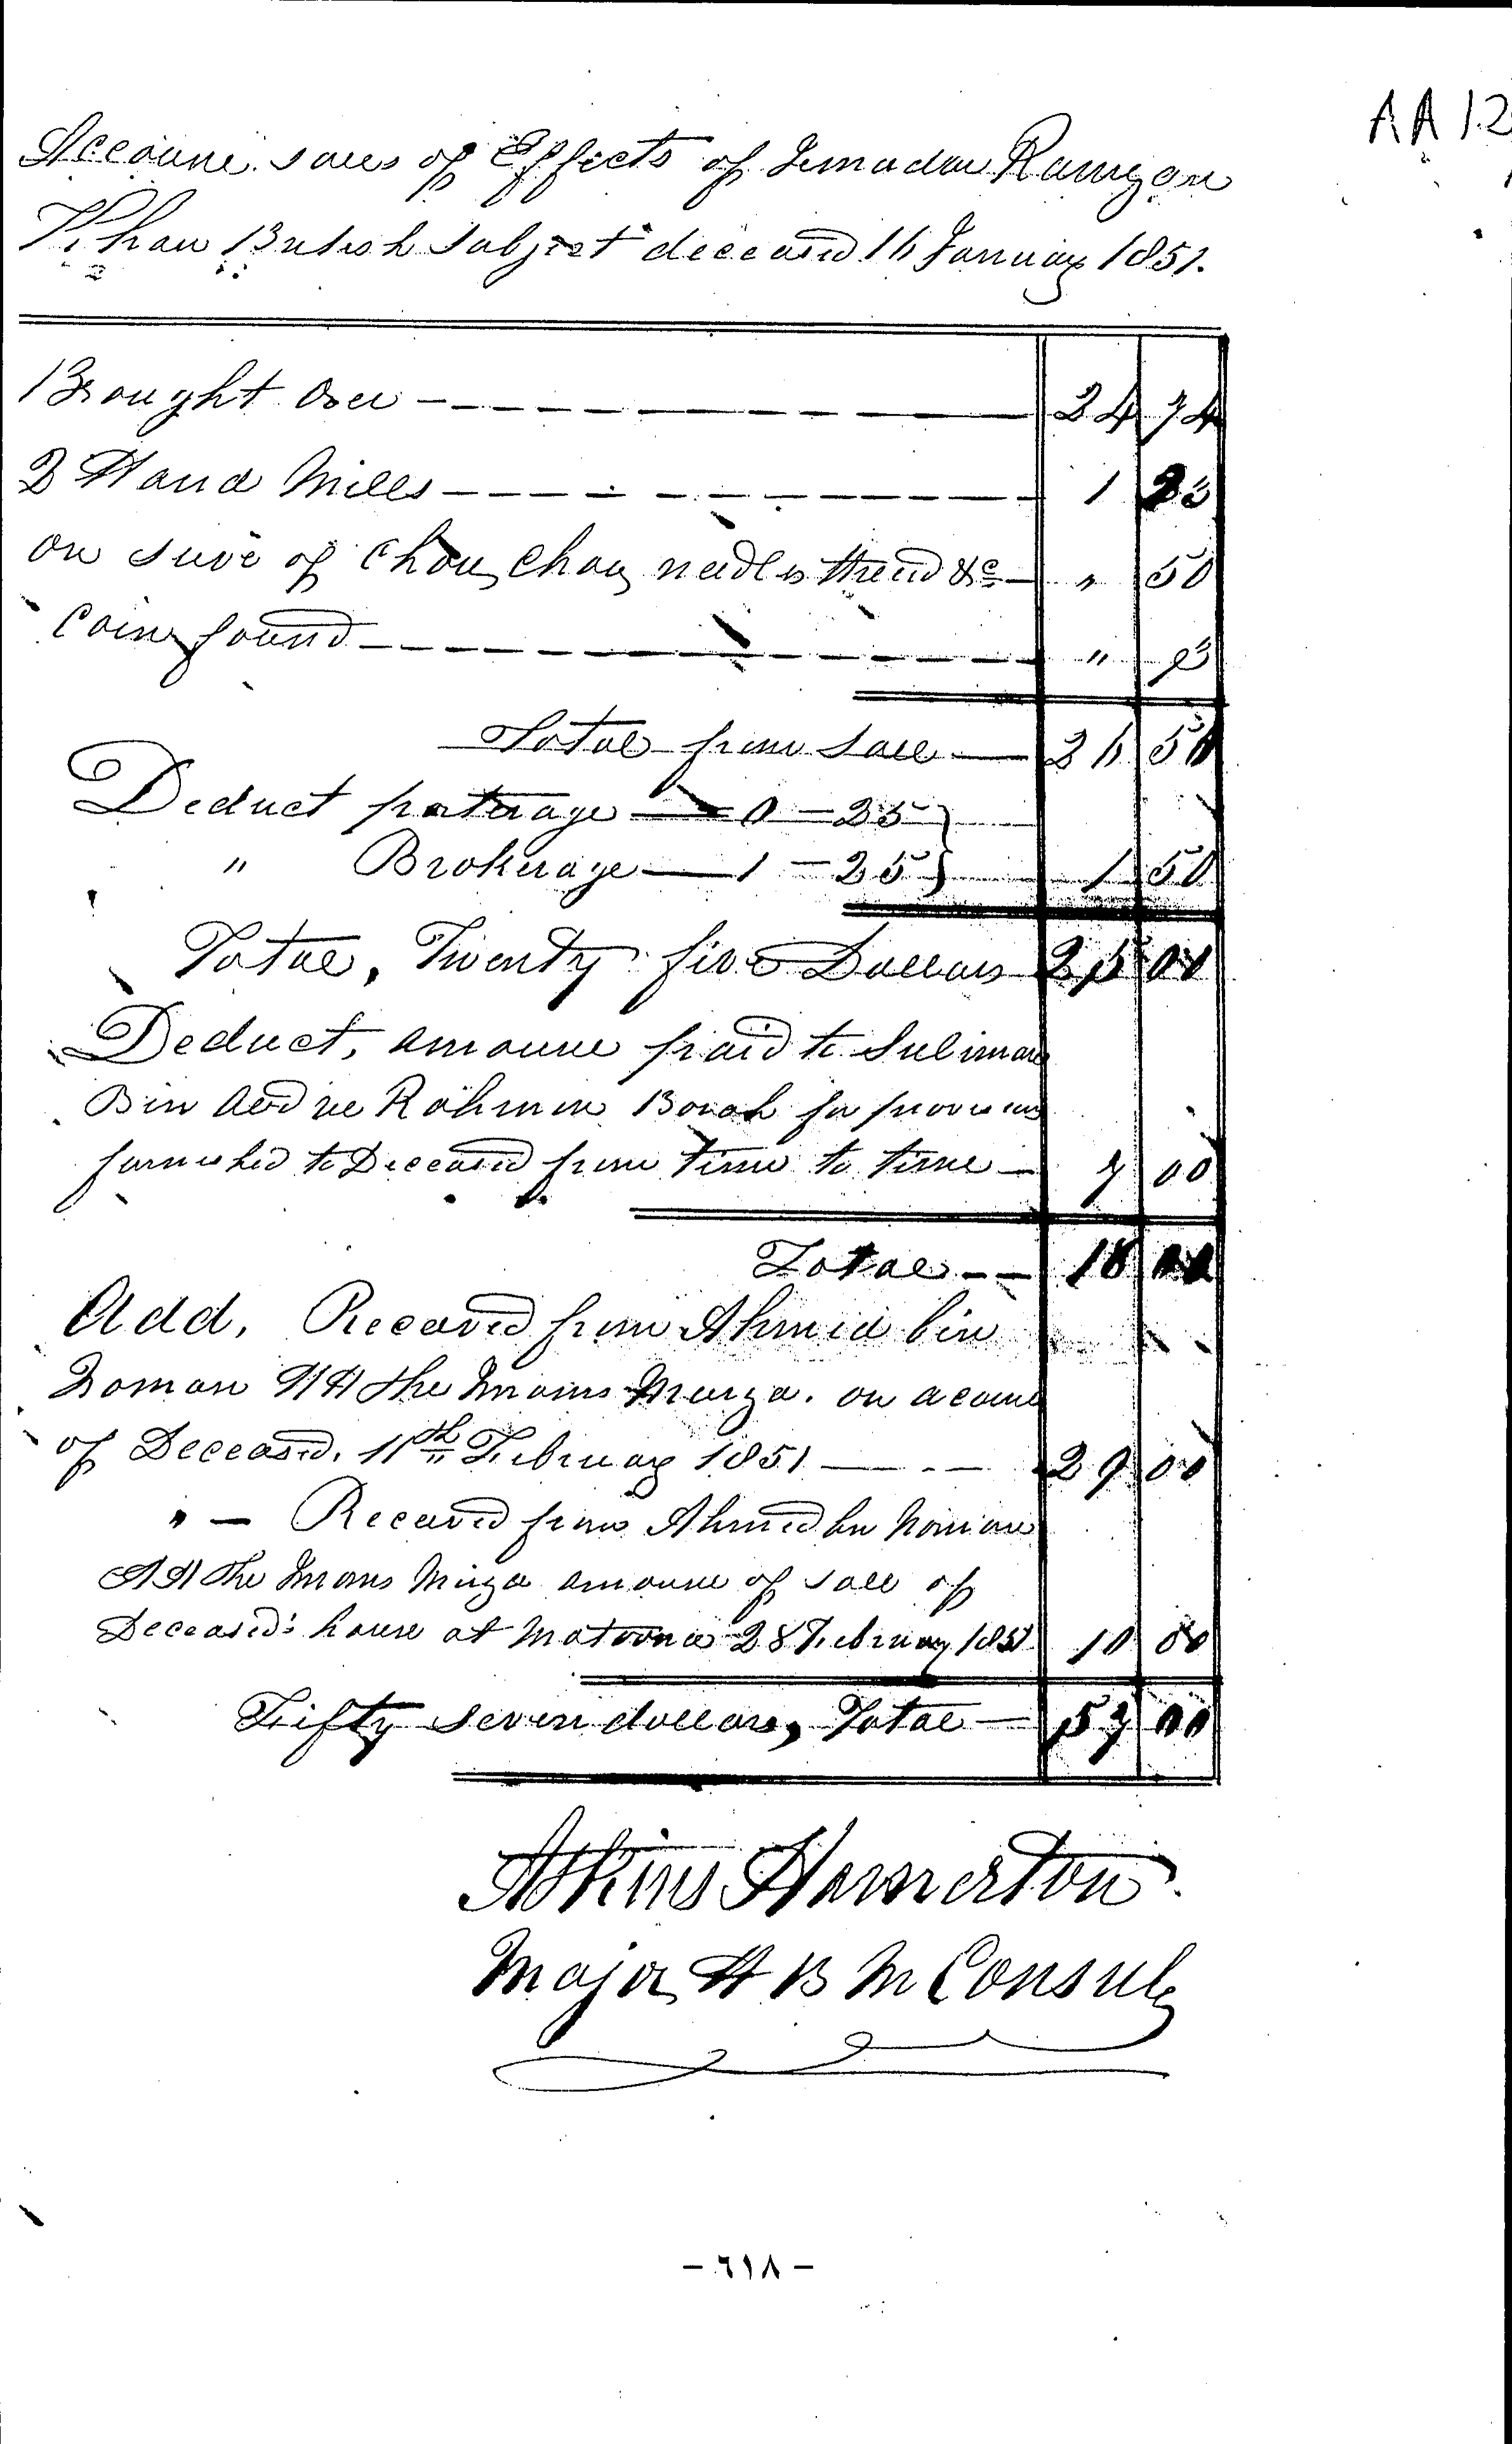 AA12
Account sales of Effects of Jemadar Ramzan
Khan British Subject deceased 16 January 1851.
Brought Over 24 74
2 Hand Mills 1 23
on sale of Chow Chow needles thread &c " 50
Coin found " 3
Total from Sale 26 50
Deduct porterage 0 - 25
" Brokerage 1 - 25 1 50
Total, Twenty five Dollars 25 00
Deduct, amount paid to Suliman
Bin Abd ul Rahman Borah for provisions
furnished to Deceased from time to time 7 00
Total 18 00
Add, Received from Ahmed bin
Noman HH the Imams Mirza. on account
of Deceased. 11th February 1851 29 00
" Received from Ahmed bin Noman
HH the Imams Mirza amount of sale of
Deceased's house at Matoona 28 February 1851 10 00
Fifty seven dollars, Total 57 00
Atkins Hamerton
Major H B M Consul
- ٦١٨ -